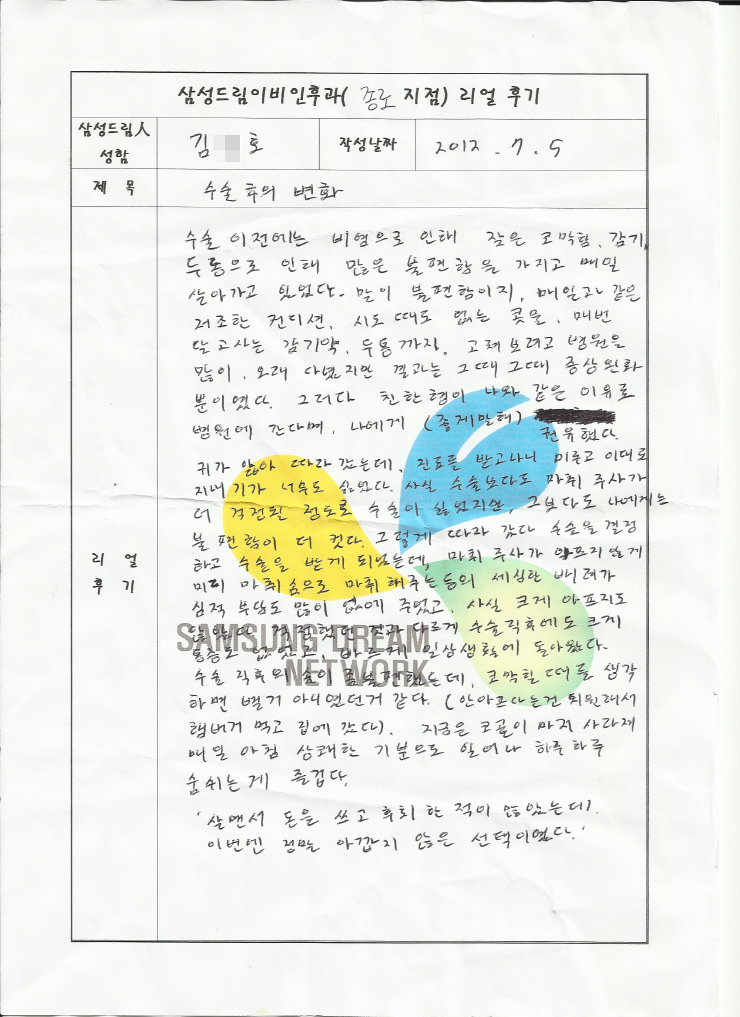 삼성드림이비인후과( 종로 지점) 리얼 후기
삼성드림人 성함
김 호
작성날짜
2012. 7. 5
제 목
수술 후의 변화
리 얼 후 기
수술 이전에는 비염으로 인해 잦은 코막힘, 감기,
두통으로 인해 많은 불편함을 가지고 매일
살아가고 있었다. 말이 불편함이지, 매일과 같은
저조한 컨디션, 시도 때도 없는 콧물, 매번
달고사는 감기약, 두통까지. 고쳐보려고 병원을
많이, 오래 다녔지만 결과는 그때 그때 증상완화
뿐이였다. 그러다 친한형이 나와 같은 이유로
병원에 간다며, 나에게 (좋게말해)
권유했다.
귀가 얇아 따라 갔는데, 진료를 받고나니 미루고 이대로
지내기가 너무도 싫었다. 사실 수술보다도 마취 주사가
더 걱정된 정도로 수술이 싫었지만, 그보다도 나에게는
불편함이 더 컸다. 그렇게 따라 갔다 수술을 결정
하고 수술을 받게 되었는데, 마취 주사가 아프지 않게
미리 마취솜으로 마취해주는등의 세심한 배려가
심적 부담도 많이 없애 주었고, 사실 크게 아프지도
않았다. 걱정했던 것과 다르게 수술직후에도 크게
통증도 없었고, 빠르게 일상생활에 돌아왔다.
수술 직후의 솜이 좀 불편했는데, 코막힐 때를 생각
하면 별거 아니였던거 같다. (안아프다는건 퇴원해서
햄버거 먹고 집에 갔다). 지금은 코골이 마저 사라져
매일 아침 상쾌한 기분으로 일어나 하루하루
숨쉬는게 즐겁다.
'살면서 돈을 쓰고 후회 한 적이 많았는데,
이번엔 정말 아깝지 않은 선택이였다.'
SAMSUNG DREAM
NETWORK